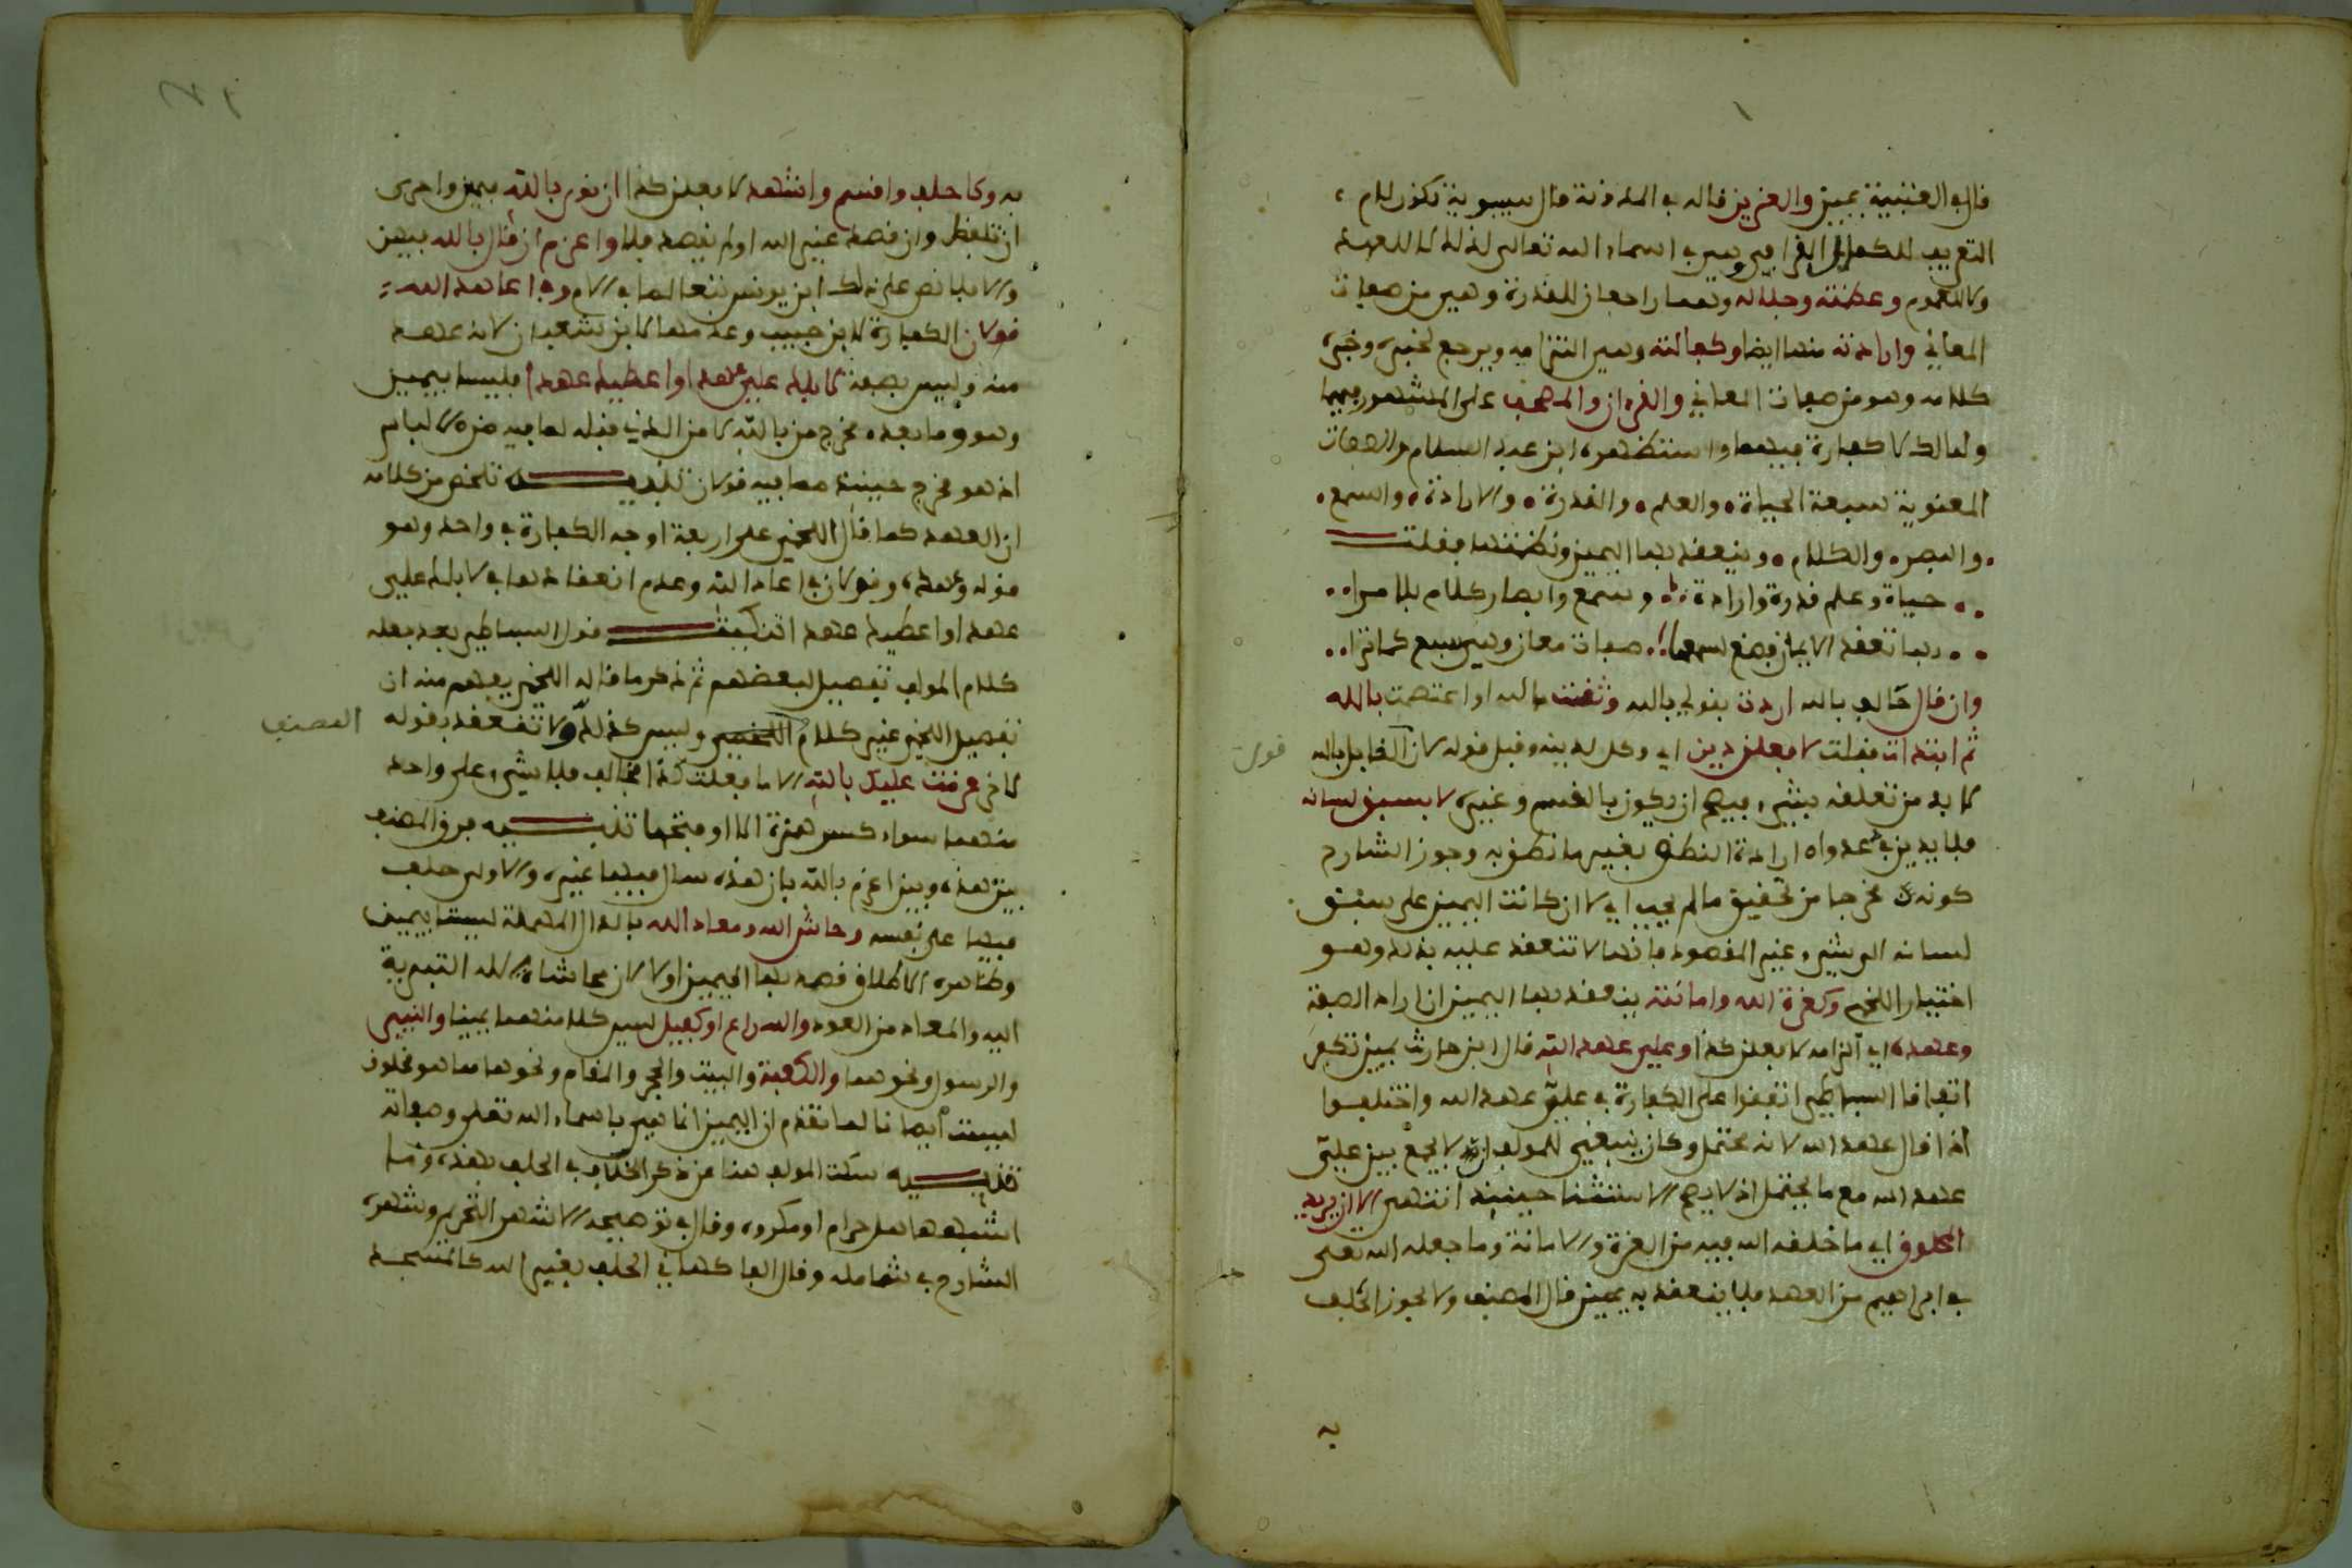 قال في العتبية يمين والعزيز قاله في المدونة قال سيبوية تكون لام
التعريف للكمال القرافي وهي في اسماء الله تعالى لذلك لا للعهد
ولا للعموم وعظمته وجلاله وهما راجعان للقدرة وهي من صفات
المعاني وارادته منها ايضا وكفالته وهي التزامه ويرجع لخبره وخبره
كلامه وهو من صفات المعاني والقرءان والمصحف على المشهور فيهما
ولمالك لا كفارة فيهما واستظهره ابن عبد السلام والصفات
المعنوية سبعة الحياة والعلم والقدرة والارادة والسمع
والبصر والكلام وينعقد بها اليمين ونظمتها فقلت
حياة وعلم قدرة وارادة وسمع وابصار كلام بلا مرا
بها تعقد الايمان صفات معان وهي سبع كما ترا
وان قال حالف بالله اردت بقولي بالله وثقت بالله او اعتصمت بالله
ثم ابتدات فقلت لافعلن دين اي وكل لدينه وقبل قوله لان القايل بالله
قوله
لا بد من تعلقه بشيء فيصح ان يكون بالقسم وغيره لا بسبق لسانه
فلا يدين في ارادة النطق بغير ما نطق به وجوز الشارح
كونه مخرجا من تحقيق ما لم يجب اي لا ان كانت اليمين على سبق
لسانه الى شيء غير المقصود فانها لا تنعقد عليه بذلك وهو
اختيار اللخمي وكعزة الله وامانته ينعقد بها اليمين ان اراد الصفة
وعهده اي الزامه لا فعلن كذا وعلي عهد الله قال ابن حارث يمين تكفر
اتفاقا البساطي اتفقوا على الكفارة في علي عهد الله واختلفوا
اذا قال عهد الله لانه محتمل وكان ينبغي للمولف ان لا يجمع بين علي
عهد الله مع ما يحتمل اذ لا يصح الاستثنا حينئذ انتهى الا ان يريد
المخلوق اي ما خلقه الله فيه من العزة والامانة وما جعله الله تعلى
في ابراهيم من العهد فلا ينعقد به يمين قال المصنف ولا يجوز الحلف
به
به وكاحلف واقسم واشهد لا فعلن كذا ان نوى بالله يمين واحرى
ان تلفظ وان قصد غير الله او لم يقصد فلا واعزم ان قال بالله يمين
والا فلا نص على ذلك ابن يونس تبعا لما في الام وفي اعاهد الله
قولان الكفارة لابن حبيب وعدمها لابن شعبان لانه عهد
منه وليس بصفة لا بلك علي عهد او اعطيك عهدا فليسا بيمين
وهو وما بعده مخرج من بالله لا من الذي قبله لما فيه من الالباس
اذ هو مخرج حينئذ مما فيه قولان تنبيه تلخص من كلامه
ان العهد كما قال اللخمي على اربعة اوجه الكفارة في واحد وهو
قوله وعهده وقولان في اعاهد الله وعدم انعقادها في لا بلك علي
عهد او اعطيك عهد قول البساطي بعد نقله
كلام المولف تفصيل لبعضهم ثم ذكر ما قاله اللخمي يفهم منه ان
تفصيل اللخمي غير كلام المصنف وليس كذلك ولا تنعقد بقوله
لاخر عزمت عليك بالله الا ما فعلت كذا فخالف فلا شيء على واحد
منهما سواء كسر همزة الا او فتحها تنبيه فرق المصنف
بين هذه وبين اعزم بالله بان هذه سال فيها غيره والاولى حلف
فيها على نفسه وحاش الله ومعاد الله بالدال المهملة ليستا بيمين
وظاهره الاطلاق قصد بها اليمين او لا لان محاشاة الله التبرية
اليه والمعاد من العود والله راع او كفيل ليس كلا منهما يمينا والنبي
والرسول ونحوهما والكعبة والبيت والحجر والمقام ونحوها مما هو مخلوق
ليست ايمانا لما تقدم ان اليمين انما هي باسماء الله تعلى وصفاته
تنبيه سكت المولف هنا عن ذكر الخلاف في الحلف بهذه وما
اشبهها هل حرام او مكروه وقال في توضيحه الاشهر التحريم وشهره
الشارح في شامله وقال الفاكهاني الحلف بغير الله كالمسجد